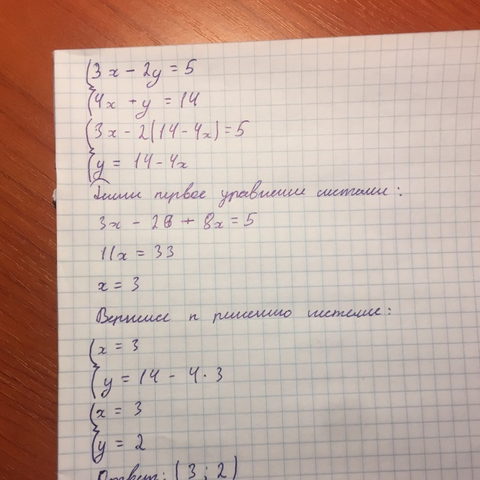 {3x - 2y = 5
{4x + y = 14
{3x - 2(14 - 4x) = 5
{y = 14 - 4x
Решим первое уравнение системы:
3x - 28 + 8x = 5
11x = 33
x = 3
Вернемся к решению системы:
{x = 3
{y = 14 - 4 · 3
{x = 3
{y = 2
Ответ: (3; 2)